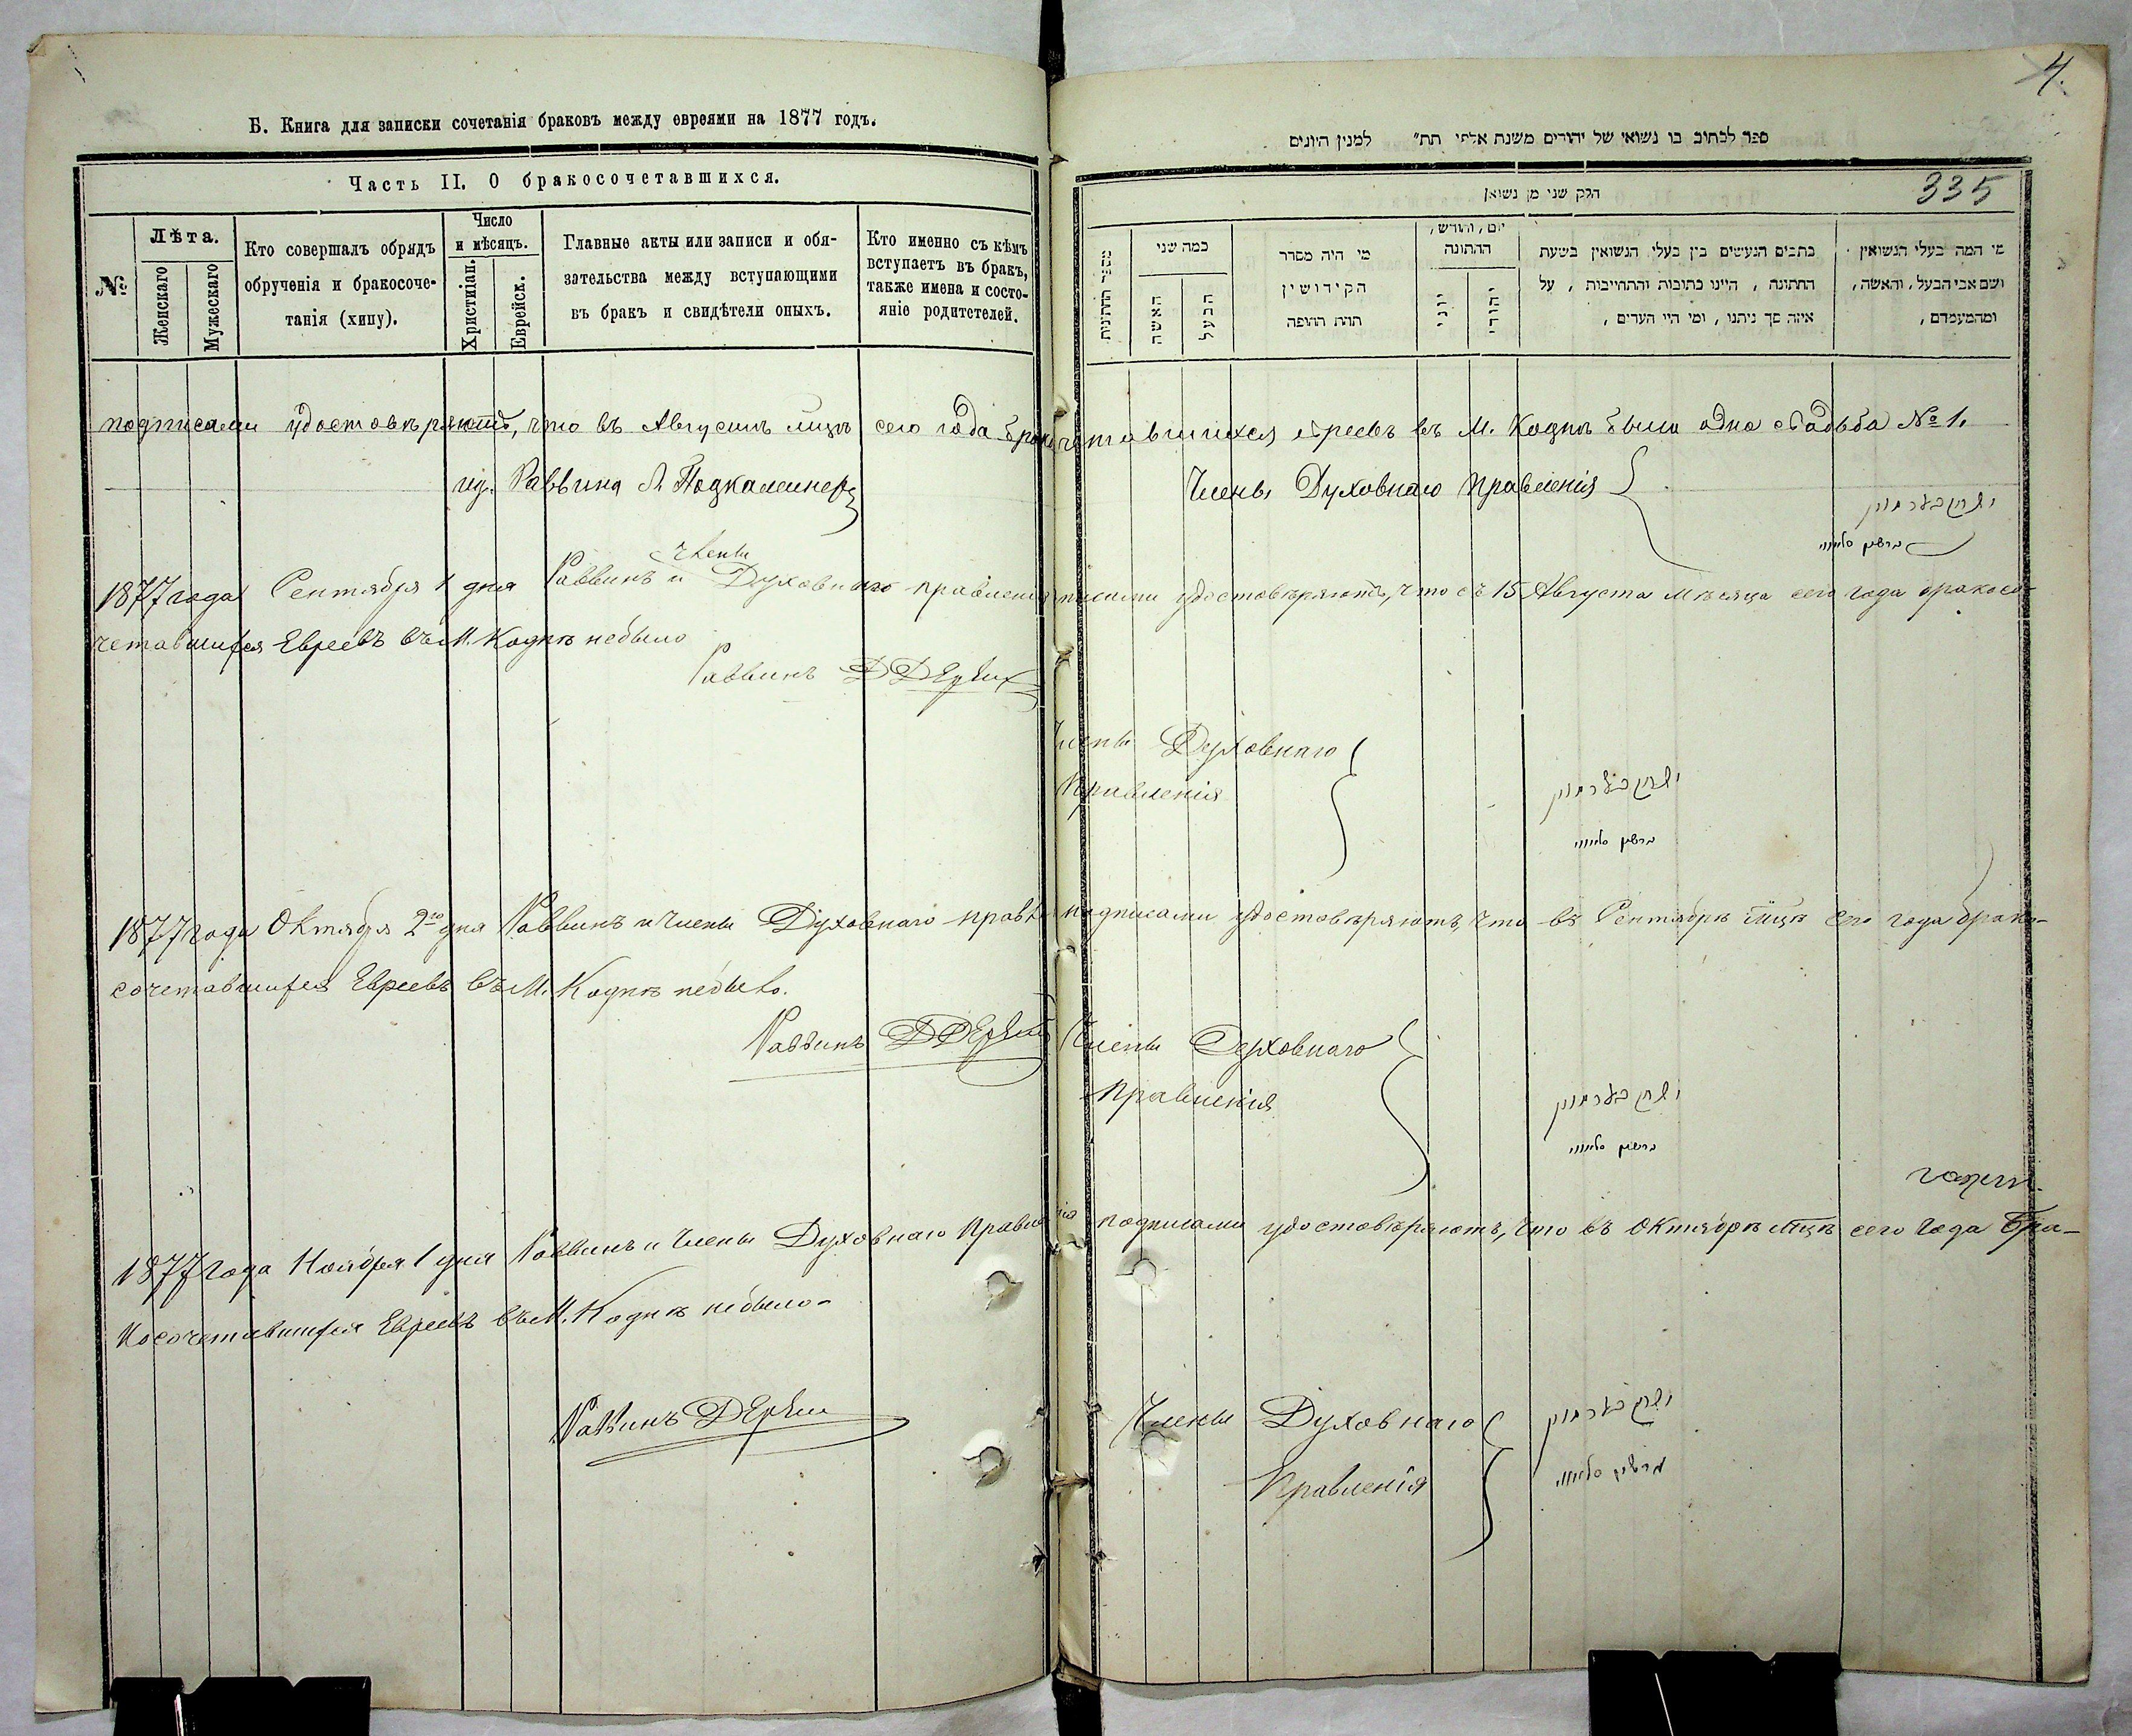 Б. Книга для записки сочетанія браковъ между евреями на 1877 годъ.
Часть II. О бракосочетавшихся.
№
Лѣта.
Женскаго
Мужескаго
Кто совершалъ обрядъ
обрученія и бракосоче-
танія (хипу).
Число
и мѣсяцъ.
Христіан.
Еврейск.
Главные акты или записи и обя-
зательства между вступающими
въ бракъ и свидѣтели оныхъ.
Кто именно съ кѣмъ
вступаетъ въ бракъ,
также имена и состо-
яніе родитетелей.
4.
ספר לכתוב בו נשואי של יהודים משנת אלפי תת״ למנין היונים
335
חלק שני מן נשואין
מי המה בעלי הנשואין
ושם אבי הבעל, והאשה,
ומהמעמדם,
כתבים הנעשים בין בעלי הנשואין בשעת
החתונה, היינו כתובות והתחייבות, על
איזה סך ניתנו, ומי היו העדים,
יום, וחודש,
החתונה
יהודי
יוני
מי היה מסדר
הקידושין
תחת החופה
כמה שני
הבעל
האשה
подписами удостовѣряютъ, что въ Августѣ мцѣ сего года бракосочетавшихся евреевъ въ М. Коднѣ была одна свадьба № 1.
ид. Раввина Л Подкаменер
Члены Духовнаго правленія
1877 года Сентября 1 дня Раввинъ и члены Духовнаго правленія подписами удостовѣряютъ, что съ 15 Августа мѣсяца сего года бракосо-
четавшихся Евреевъ въ М. Коднѣ небыло
Раввинъ
Члены Духовнаго
Правленія
1877 года Октября 2го дня Раввинъ и Члены Духовнаго правленія подписами удостовѣряютъ, что въ Сентябрѣ мцѣ сего года брако-
сочетавшихся Евреевъ въ М. Коднѣ небыло.
Раввинъ
Члены Духовнаго
Правленія
1877 года Ноября 1 дня Раввинъ и Члены Духовнаго Правленія подписами удостовѣряютъ, что въ Октябрѣ мцѣ сего года бра-
косочетавшихся Евреевъ въ М. Коднѣ небыло
Раввинъ
Члены Духовнаго
Правленія